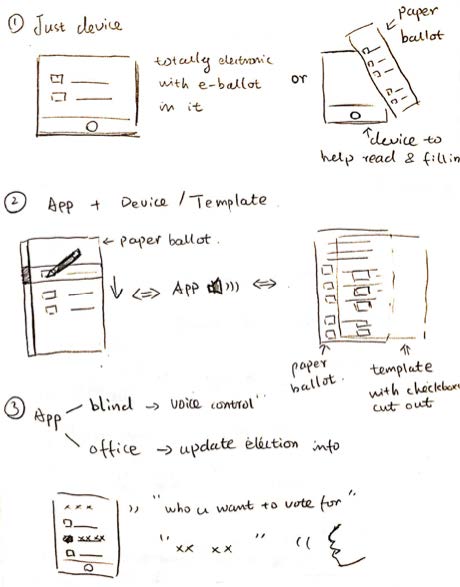 ① Just device
totally electronic
with e-ballot
in it
or
Paper
ballot
device to
help read & fillin
② App + Device / Template
paper ballot.
App
paper
ballot.
template
with checkbox
cut out
③ App
blind → voice control
office → update election info
x x x
xxxx
"who u want to vote for"
" xx xx "